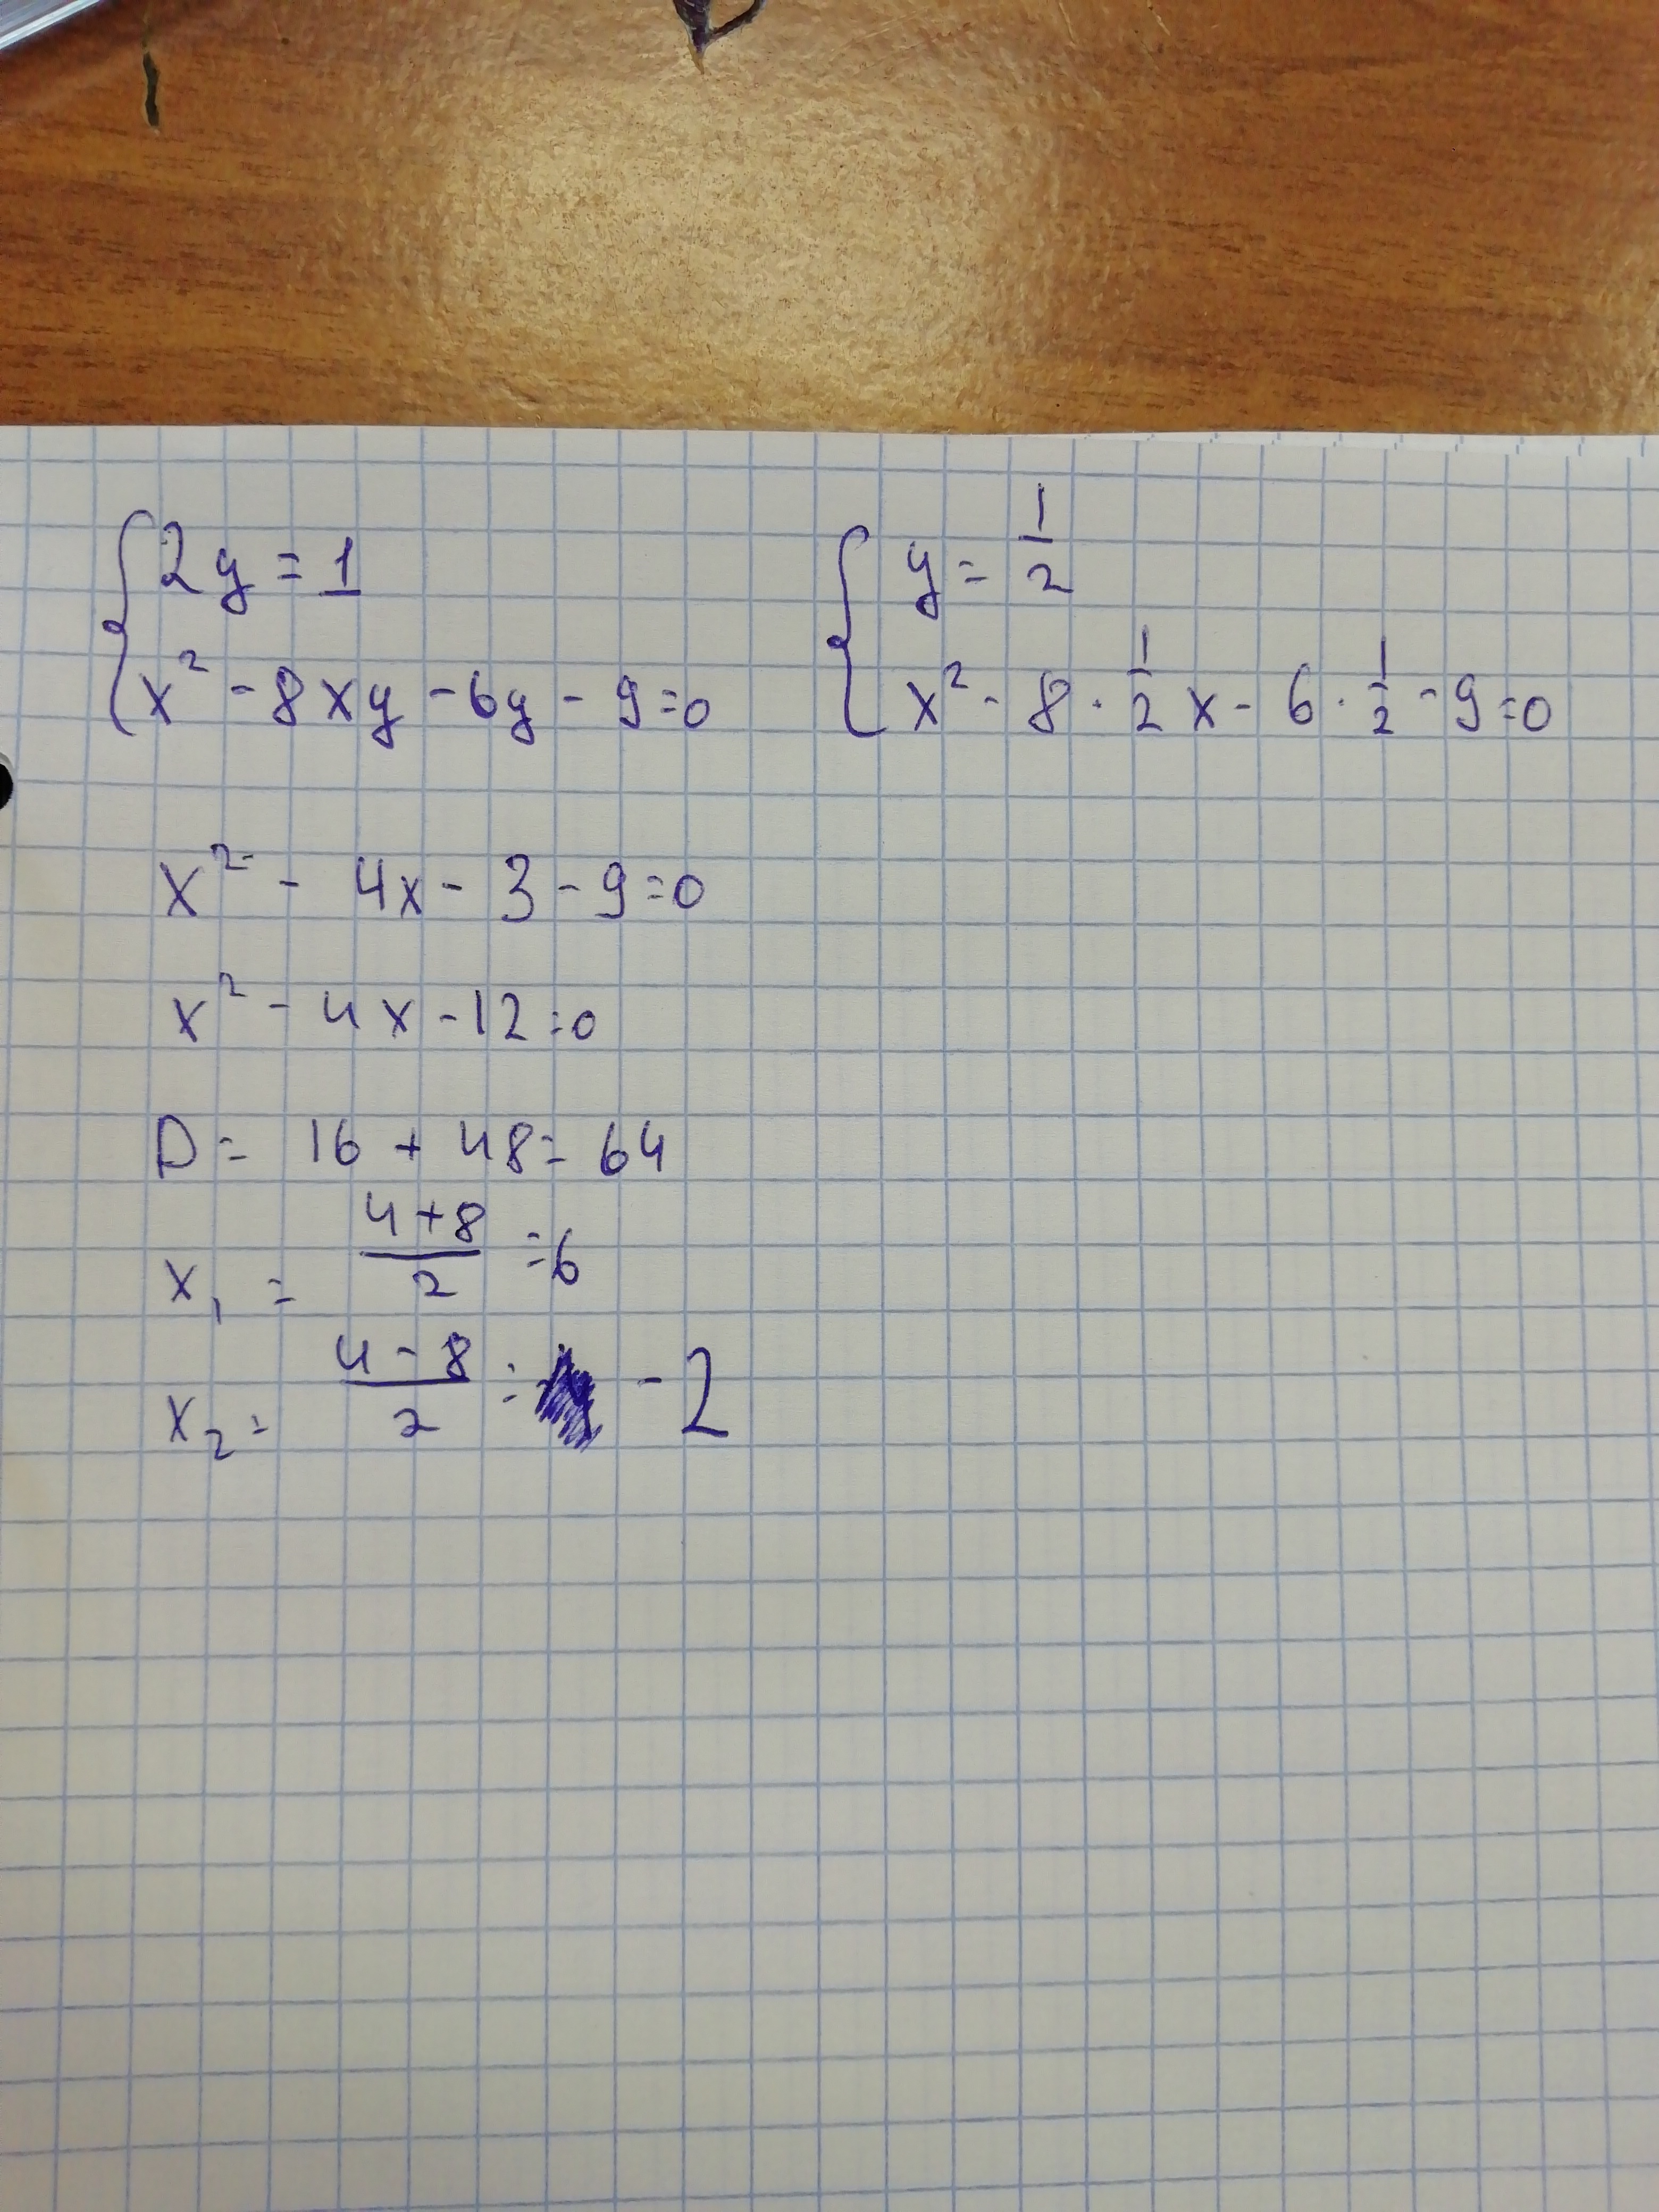 { 2y = 1
x² - 8xy - 6y - 9 = 0
{ y = 1/2
x² - 8 · 1/2 x - 6 · 1/2 - 9 = 0
x² - 4x - 3 - 9 = 0
x² - 4x - 12 = 0
D = 16 + 48 = 64
x₁ = (4+8)/2 = 6
x₂ = (4-8)/2 = -2